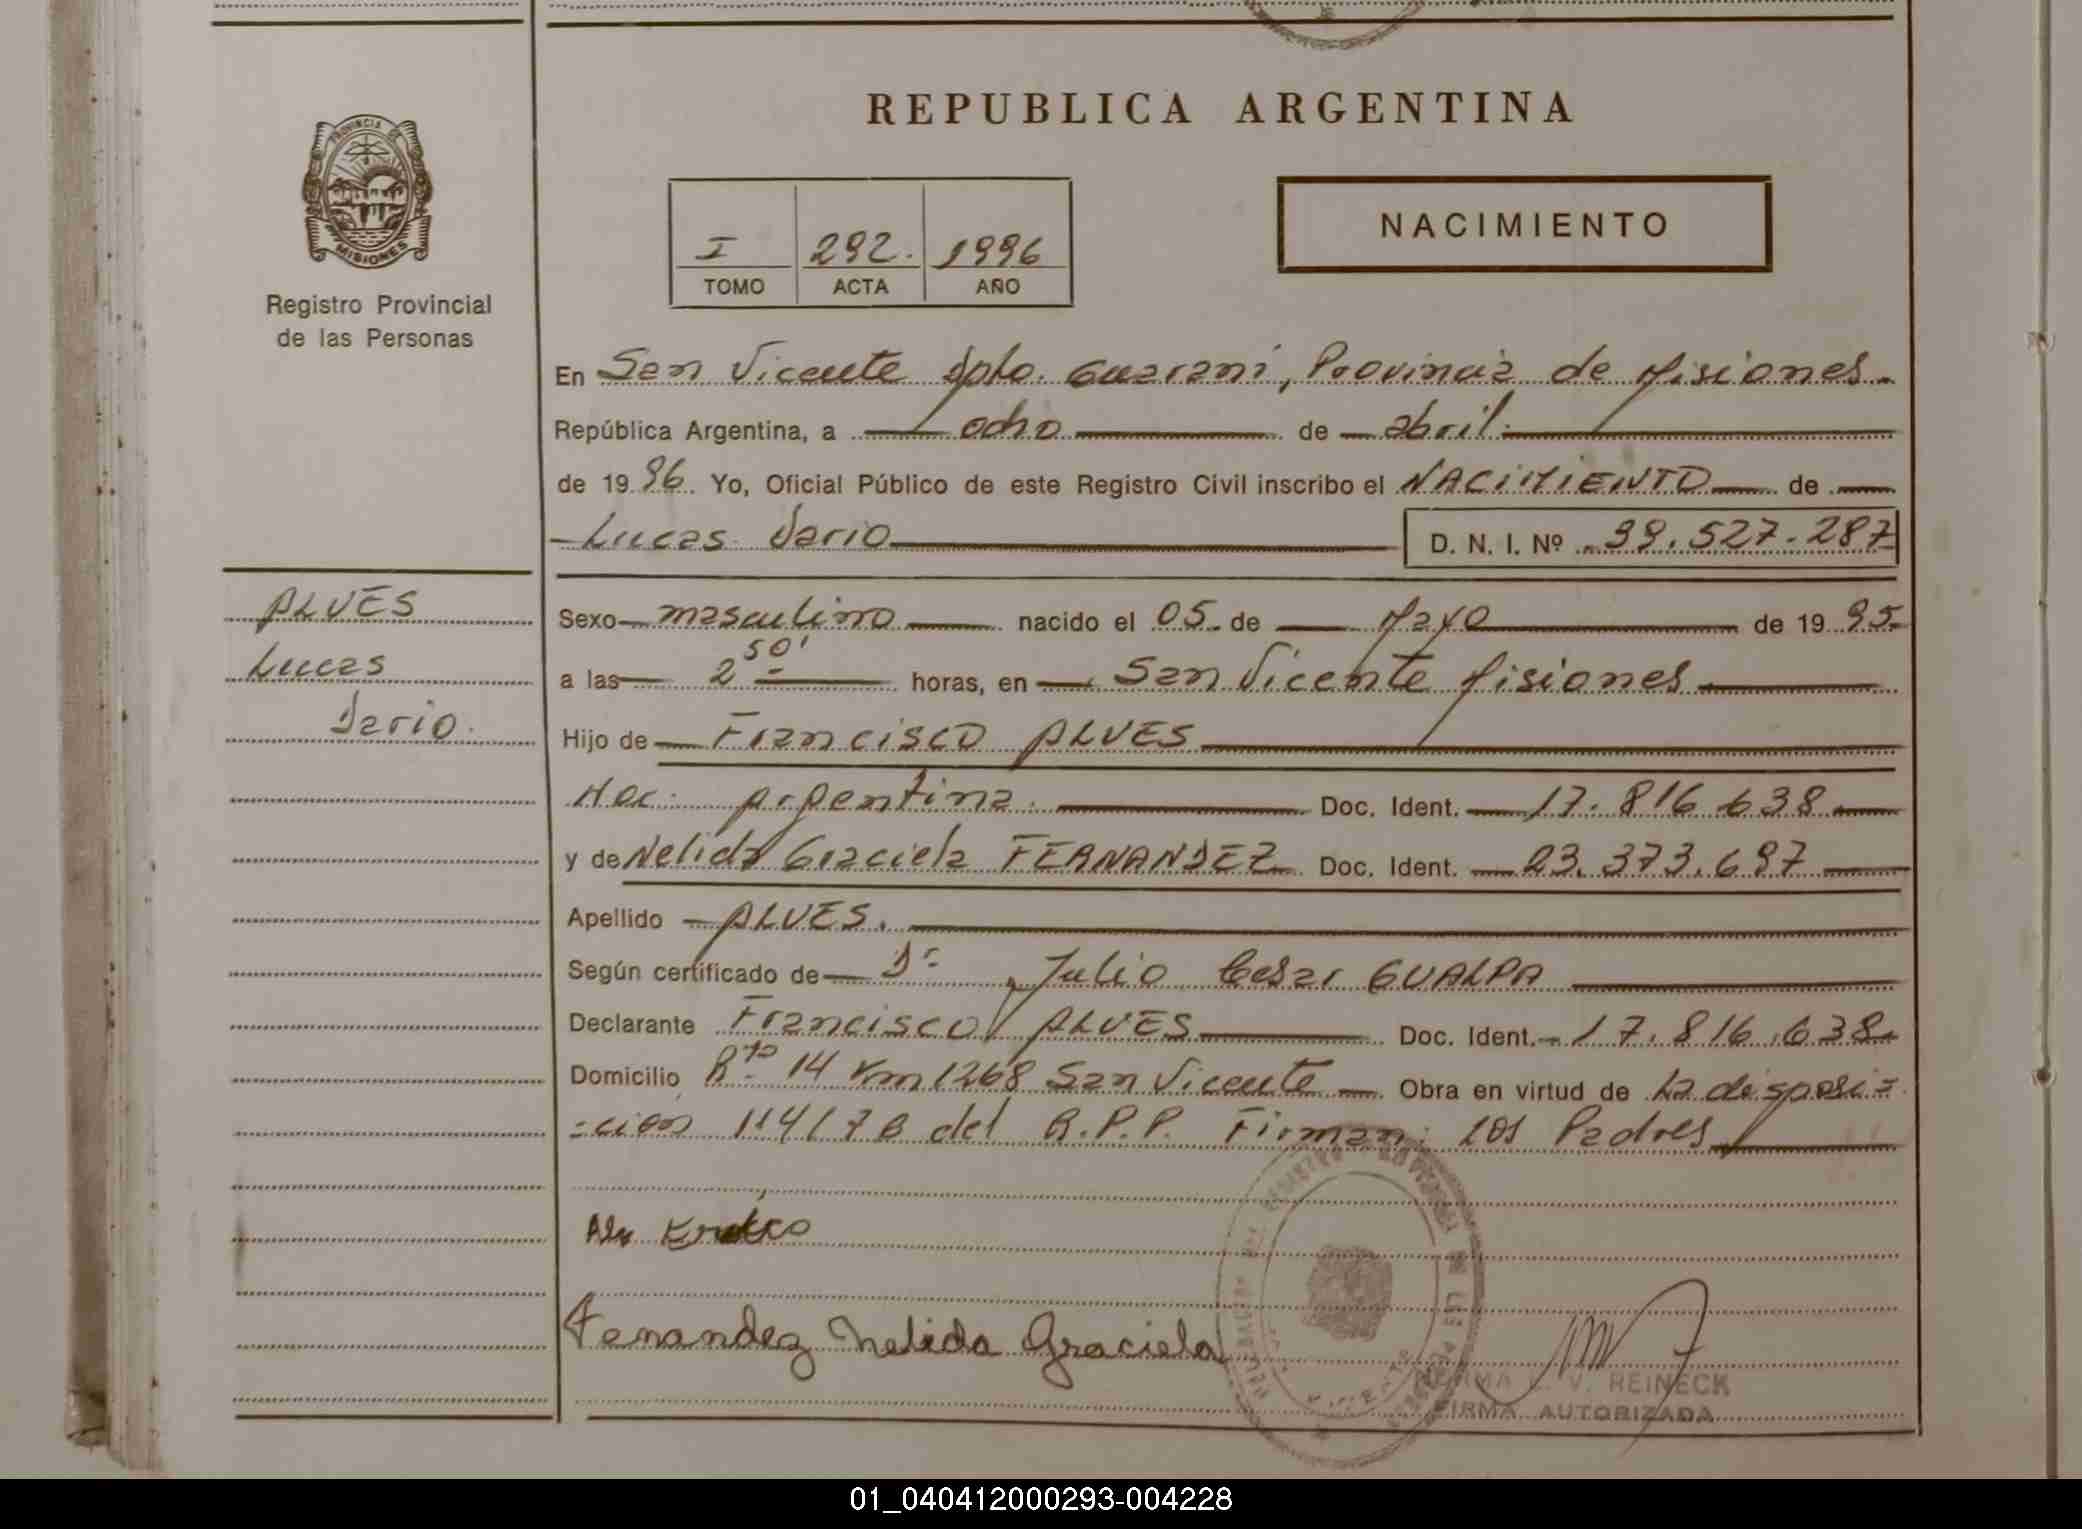 REPUBLICA ARGENTINA
PROVINCIA DE
MISIONES
Registro Provincial
de las Personas
I 292. 1996
TOMO ACTA AÑO
NACIMIENTO
En San Vicente Dpto. Guarani, Provincia de Misiones.
República Argentina, a ocho de abril.
de 1996. Yo, Oficial Público de este Registro Civil inscribo el NACIMIENTO de
Lucas Dario D. N. I. Nº 39.527.287
ALVES
Lucas
Dario.
Sexo masculino nacido el 05 de Mayo de 1995.
a las 2 50' horas, en San Vicente Misiones
Hijo de Francisco ALVES
Nac. Argentina. Doc. Ident. 17.816.638
y de Nelida Graciela FERNANDEZ Doc. Ident. 23.373.697
Apellido ALVES.
Según certificado de Dr. Julio Cesar GUALPA
Declarante Francisco ALVES Doc. Ident. 17.816.638
Domicilio Rta 14 Km 1268 San Vicente Obra en virtud de La disposi=
=ción 114/78 del R.P.P. Firman: los Padres
Fenandez Nelida Graciela
V. REINECK
FIRMA AUTORIZADA
01_040412000293-004228